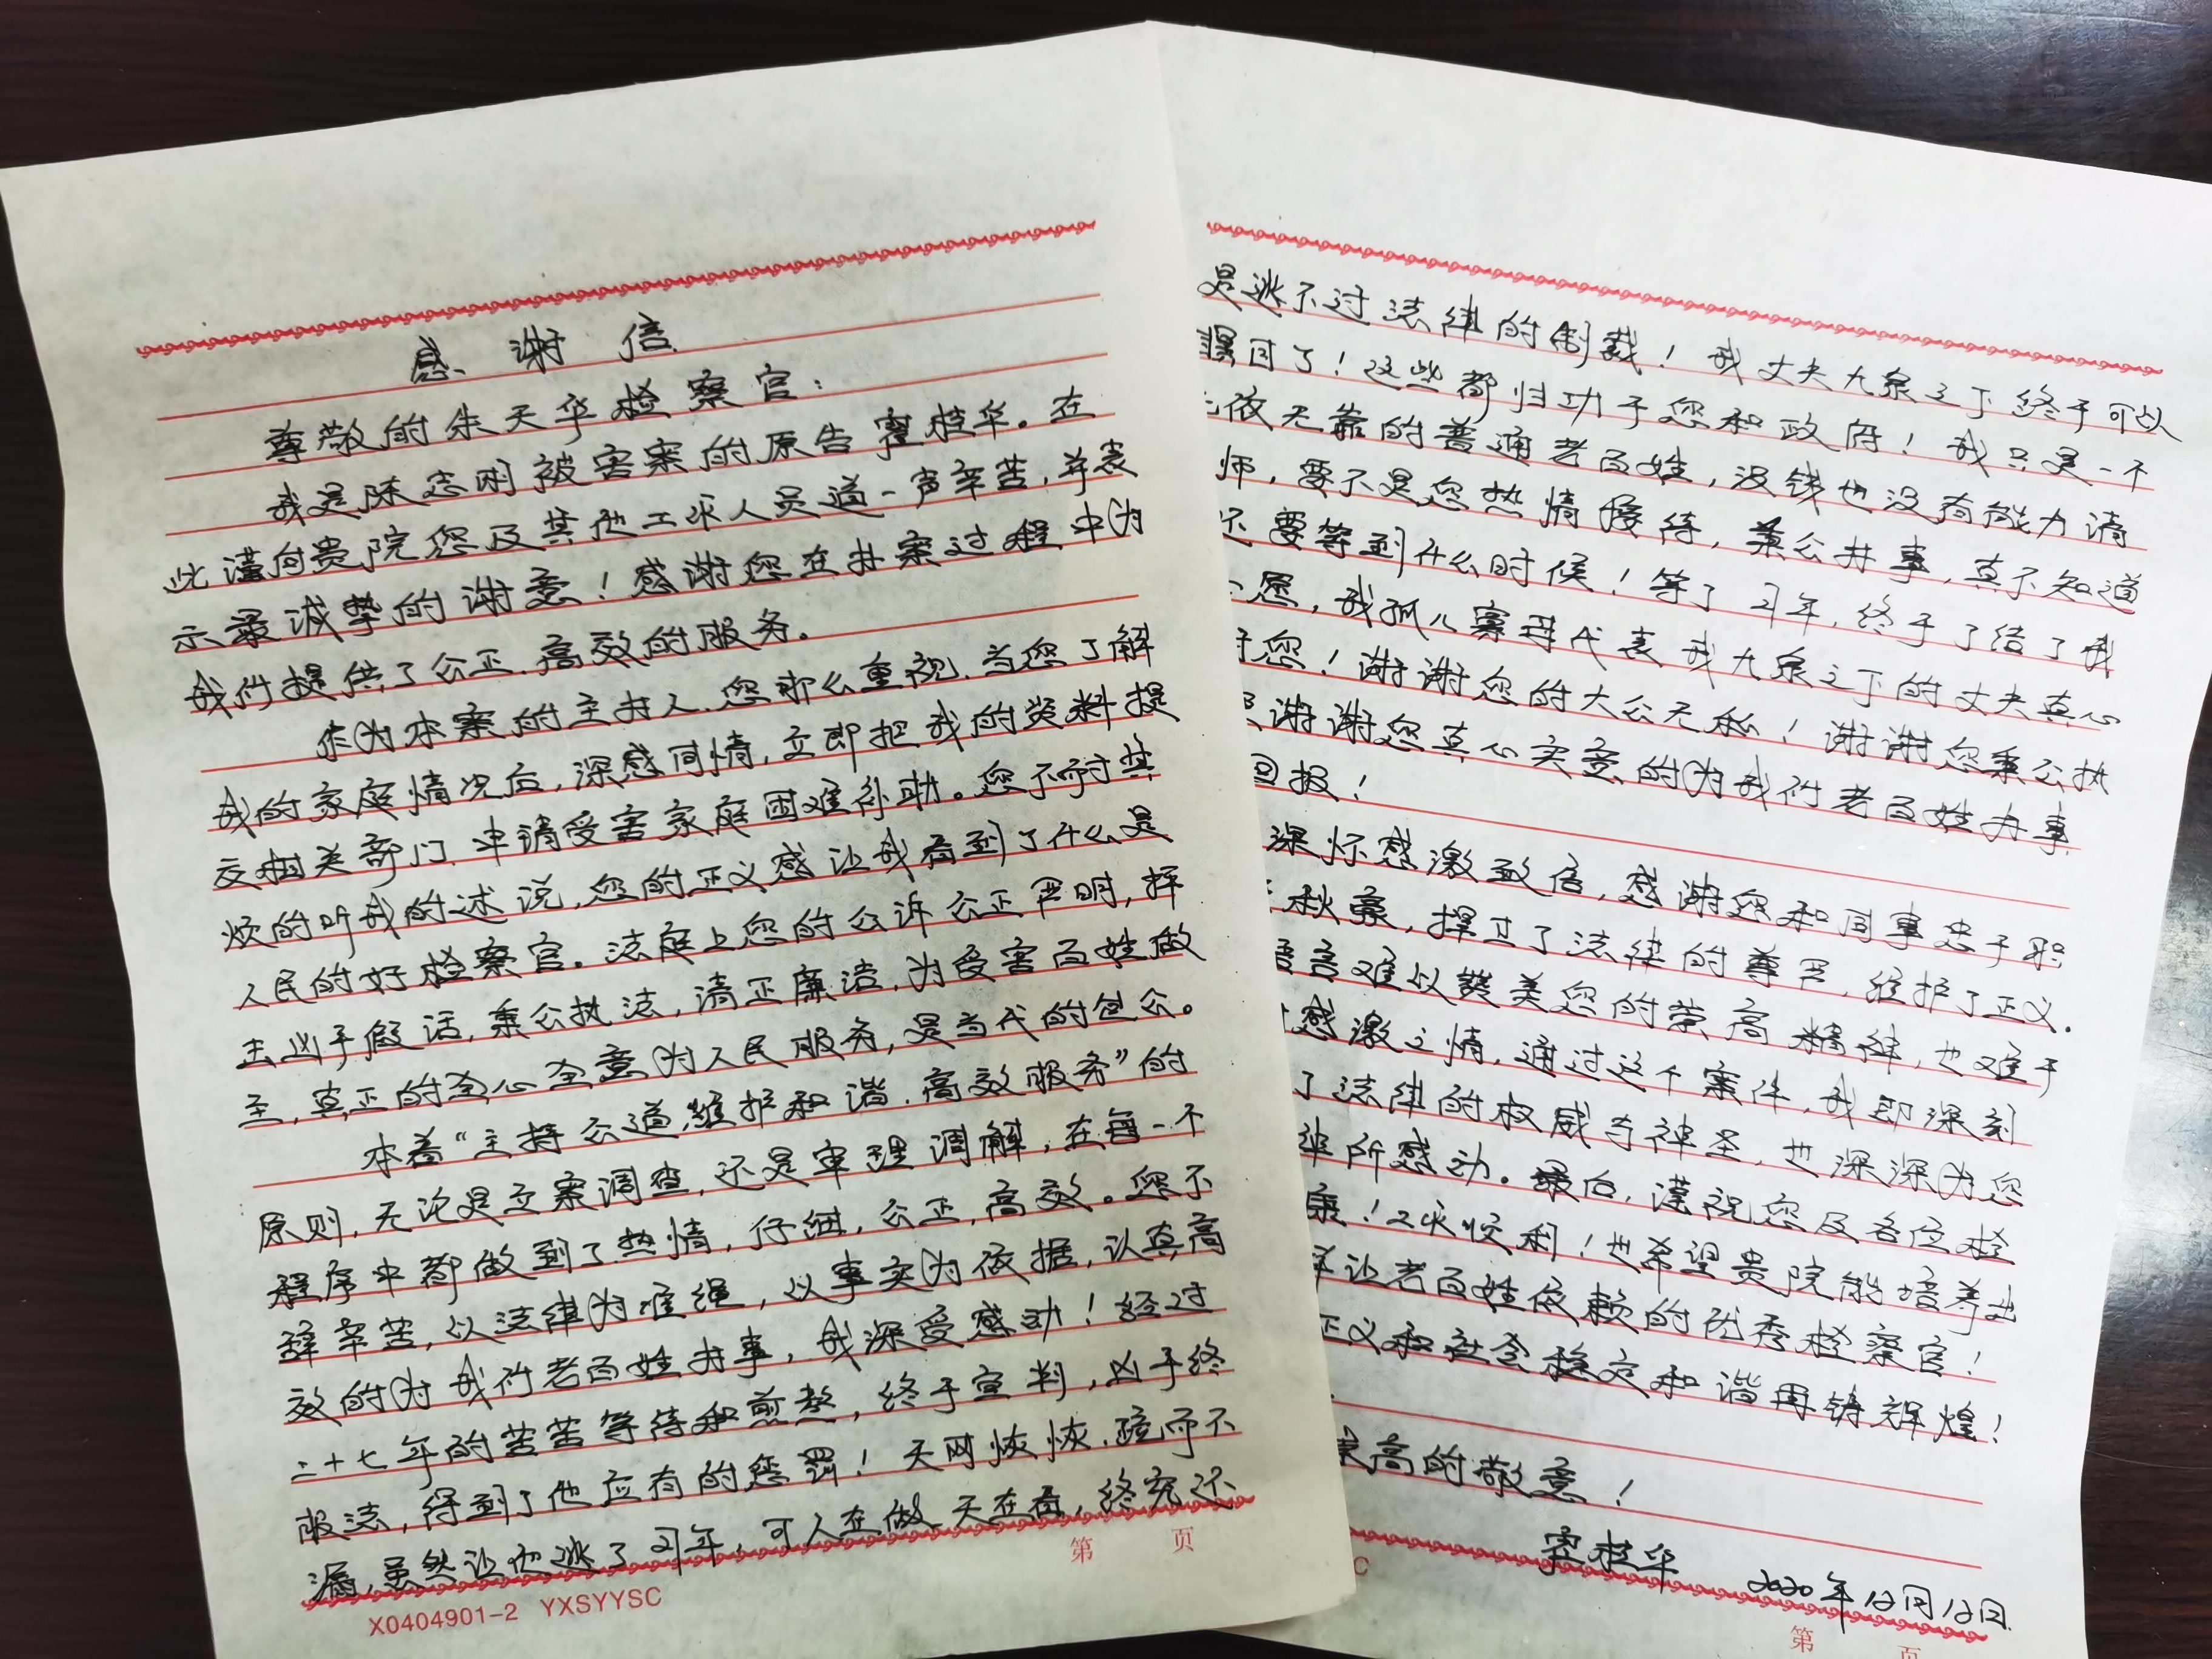 感谢信
尊敬的朱天华检察官：
我是陈志刚被害案的原告霍枝华。在
此谨向贵院您及其他工作人员道一声辛苦，并表
示最诚挚的谢意！感谢您在办案过程中为
我们提供了公正、高效的服务。
作为本案的主持人，您那么重视，当您了解
我的家庭情况后，深感同情，立即把我的资料提
交相关部门，申请受害家庭困难补助。您不耐其
烦的听我的述说，您的正义感让我看到了什么是
人民的好检察官。法庭上您的公诉公正严明，抨
击凶手假话，秉公执法，清正廉洁，为受害百姓做
主，真正的全心全意为人民服务，是当代的包公。
本着“主持公道，维护和谐，高效服务”的
原则，无论是立案调查，还是审理调解，在每一个
程序中都做到了热情，仔细，公正，高效。您不
辞辛苦，以法律为准绳，以事实为依据，认真高
效的为我们老百姓办事，我深受感动！经过
二十七年的苦苦等待和煎熬，终于宣判，凶手终
服法，得到了他应有的惩罚！天网恢恢，疏而不
漏，虽然让他逃了27年，可人在做，天在看，终究还
第 页
X0404901-2 YXSYYSC
是逃不过法律的制裁！我丈夫九泉之下终于可以
瞑目了！这些都归功于您和政府！我只是一个
无依无靠的普通老百姓，没钱也没有能力请
师，要不是您热情接待，秉公办事，真不知道
还要等到什么时候！等了27年，终于了结了我
心愿，我孤儿寡母代表我九泉之下的丈夫真心
谢您！谢谢您的大公无私！谢谢您秉公执
谢谢您真心实意的为我们老百姓办事
回报！
深怀感激致信，感谢您和同事忠于职
秋毫，捍卫了法律的尊严，维护了正义。
语言难以赞美您的崇高精神，也难于
感激之情，通过这个案件，我即深刻
了法律的权威与神圣，也深深为您
神所感动。最后，谨祝您及各位检
康！工作顺利！也希望贵院能培养出
样让老百姓依赖的优秀检察官！
正义和社会稳定和谐再铸辉煌！
崇高的敬意！
霍枝华
2020年12月12日
C
第 页